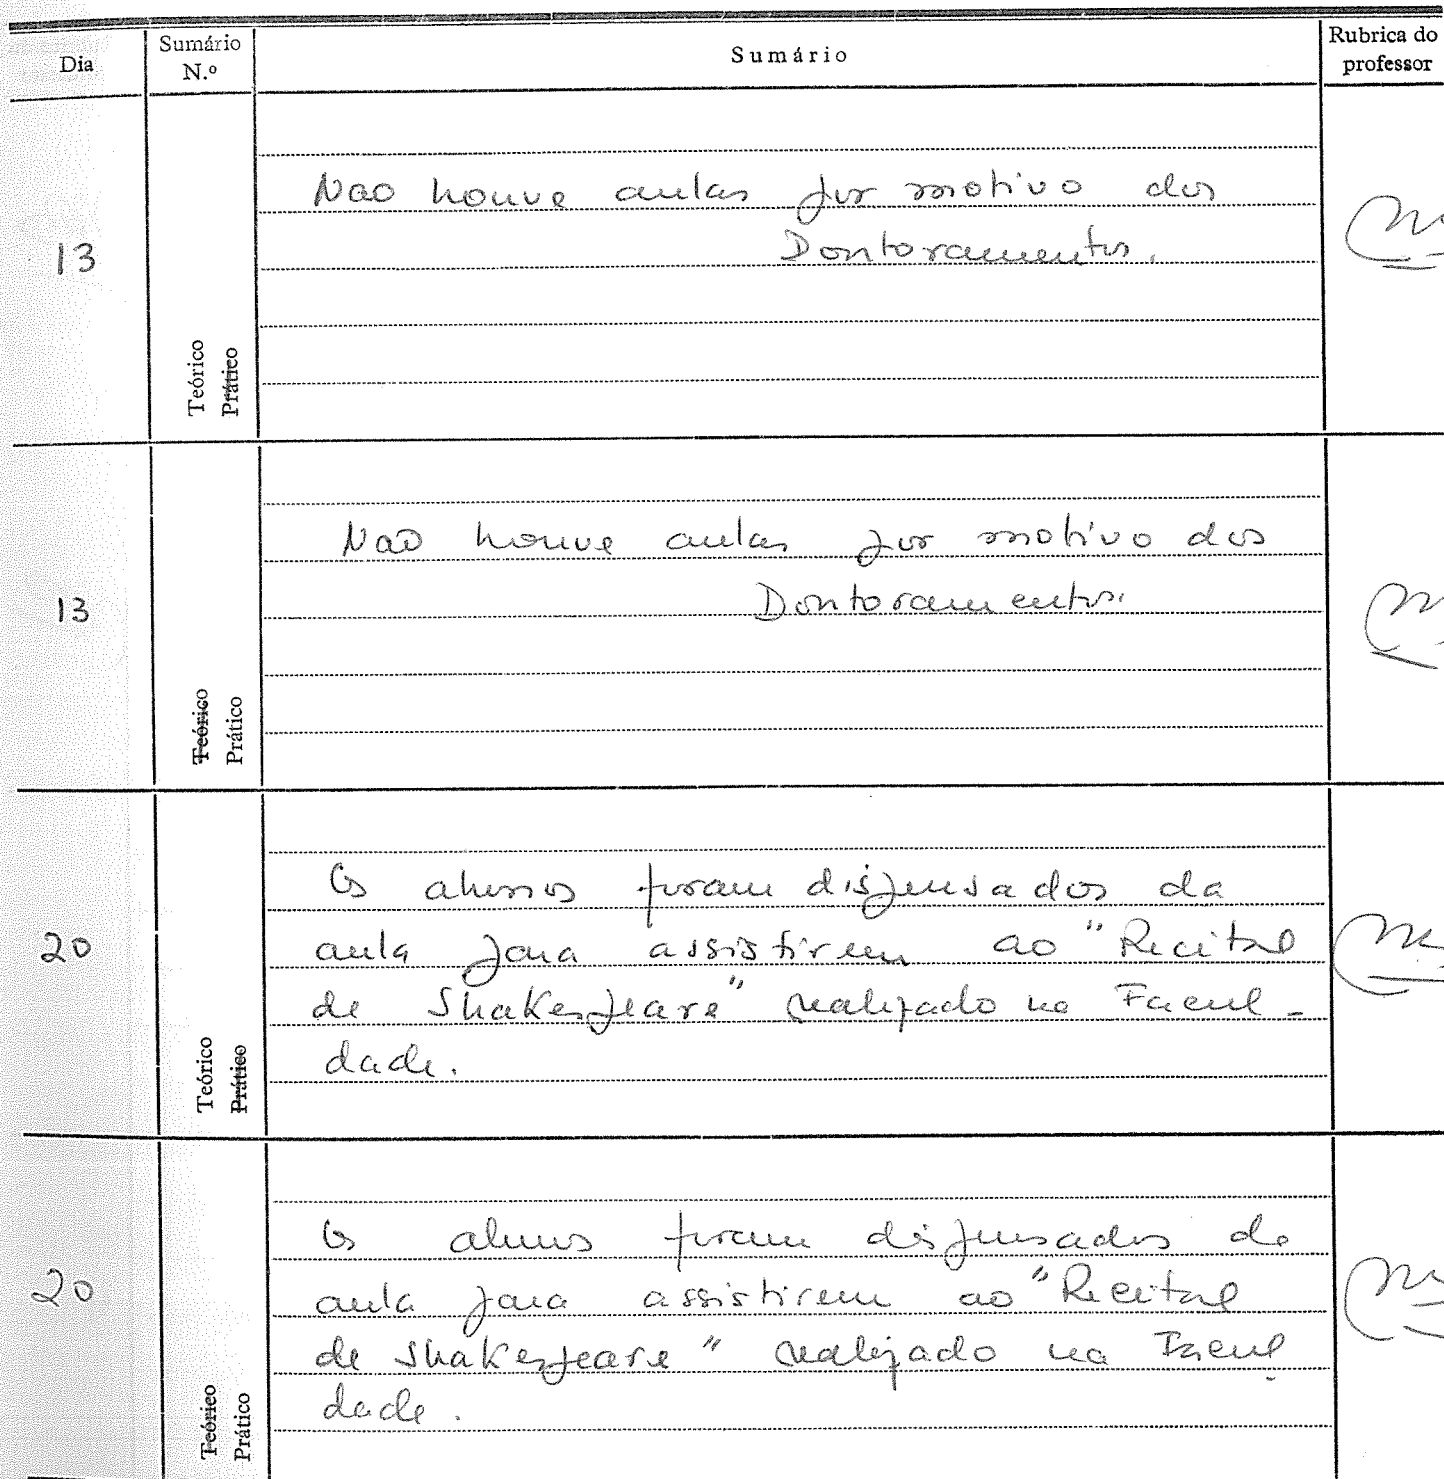 Dia Sumário N.º Sumário Rubrica do professor
Não houve aulas por motivo dos
13 Doutoramentos.
Teórico
Prático
Não houve aulas por motivo dos
13 Doutoramentos.
Teórico
Prático
Os alunos foram dispensados da
20 aula para assistirem ao "Recital
de Shakespeare" realizado na Facul-
dade.
Teórico
Prático
Os alunos foram dispensados da
20 aula para assistirem ao "Recital
de Shakespeare" realizado na Facul
dade.
Teórico
Prático